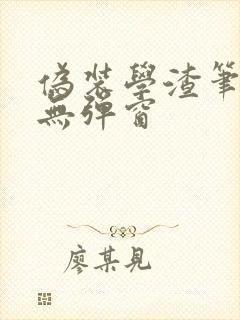 偽裝學渣筆
無彈窗
廖某見